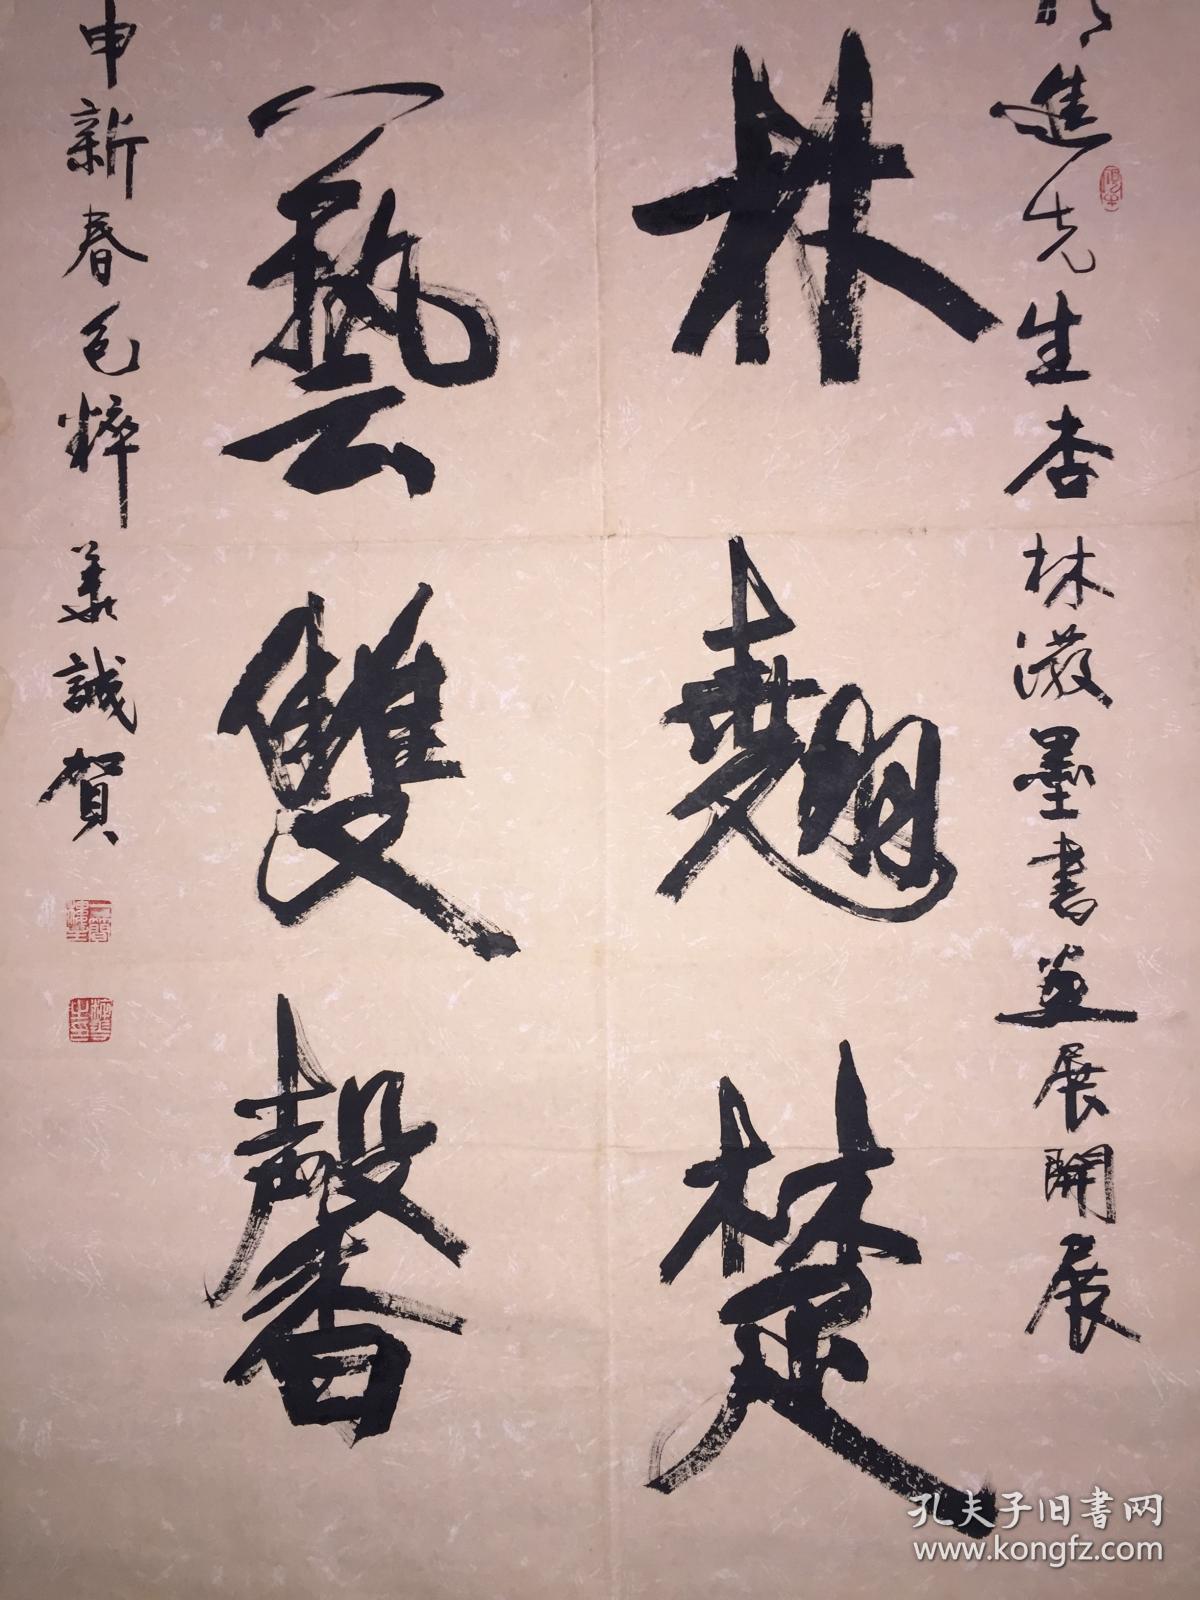 進先生杏林潑墨書画展開展
林翹楚
藝雙馨
申新春包粹美誠賀
孔夫子旧书网
www.kongfz.com